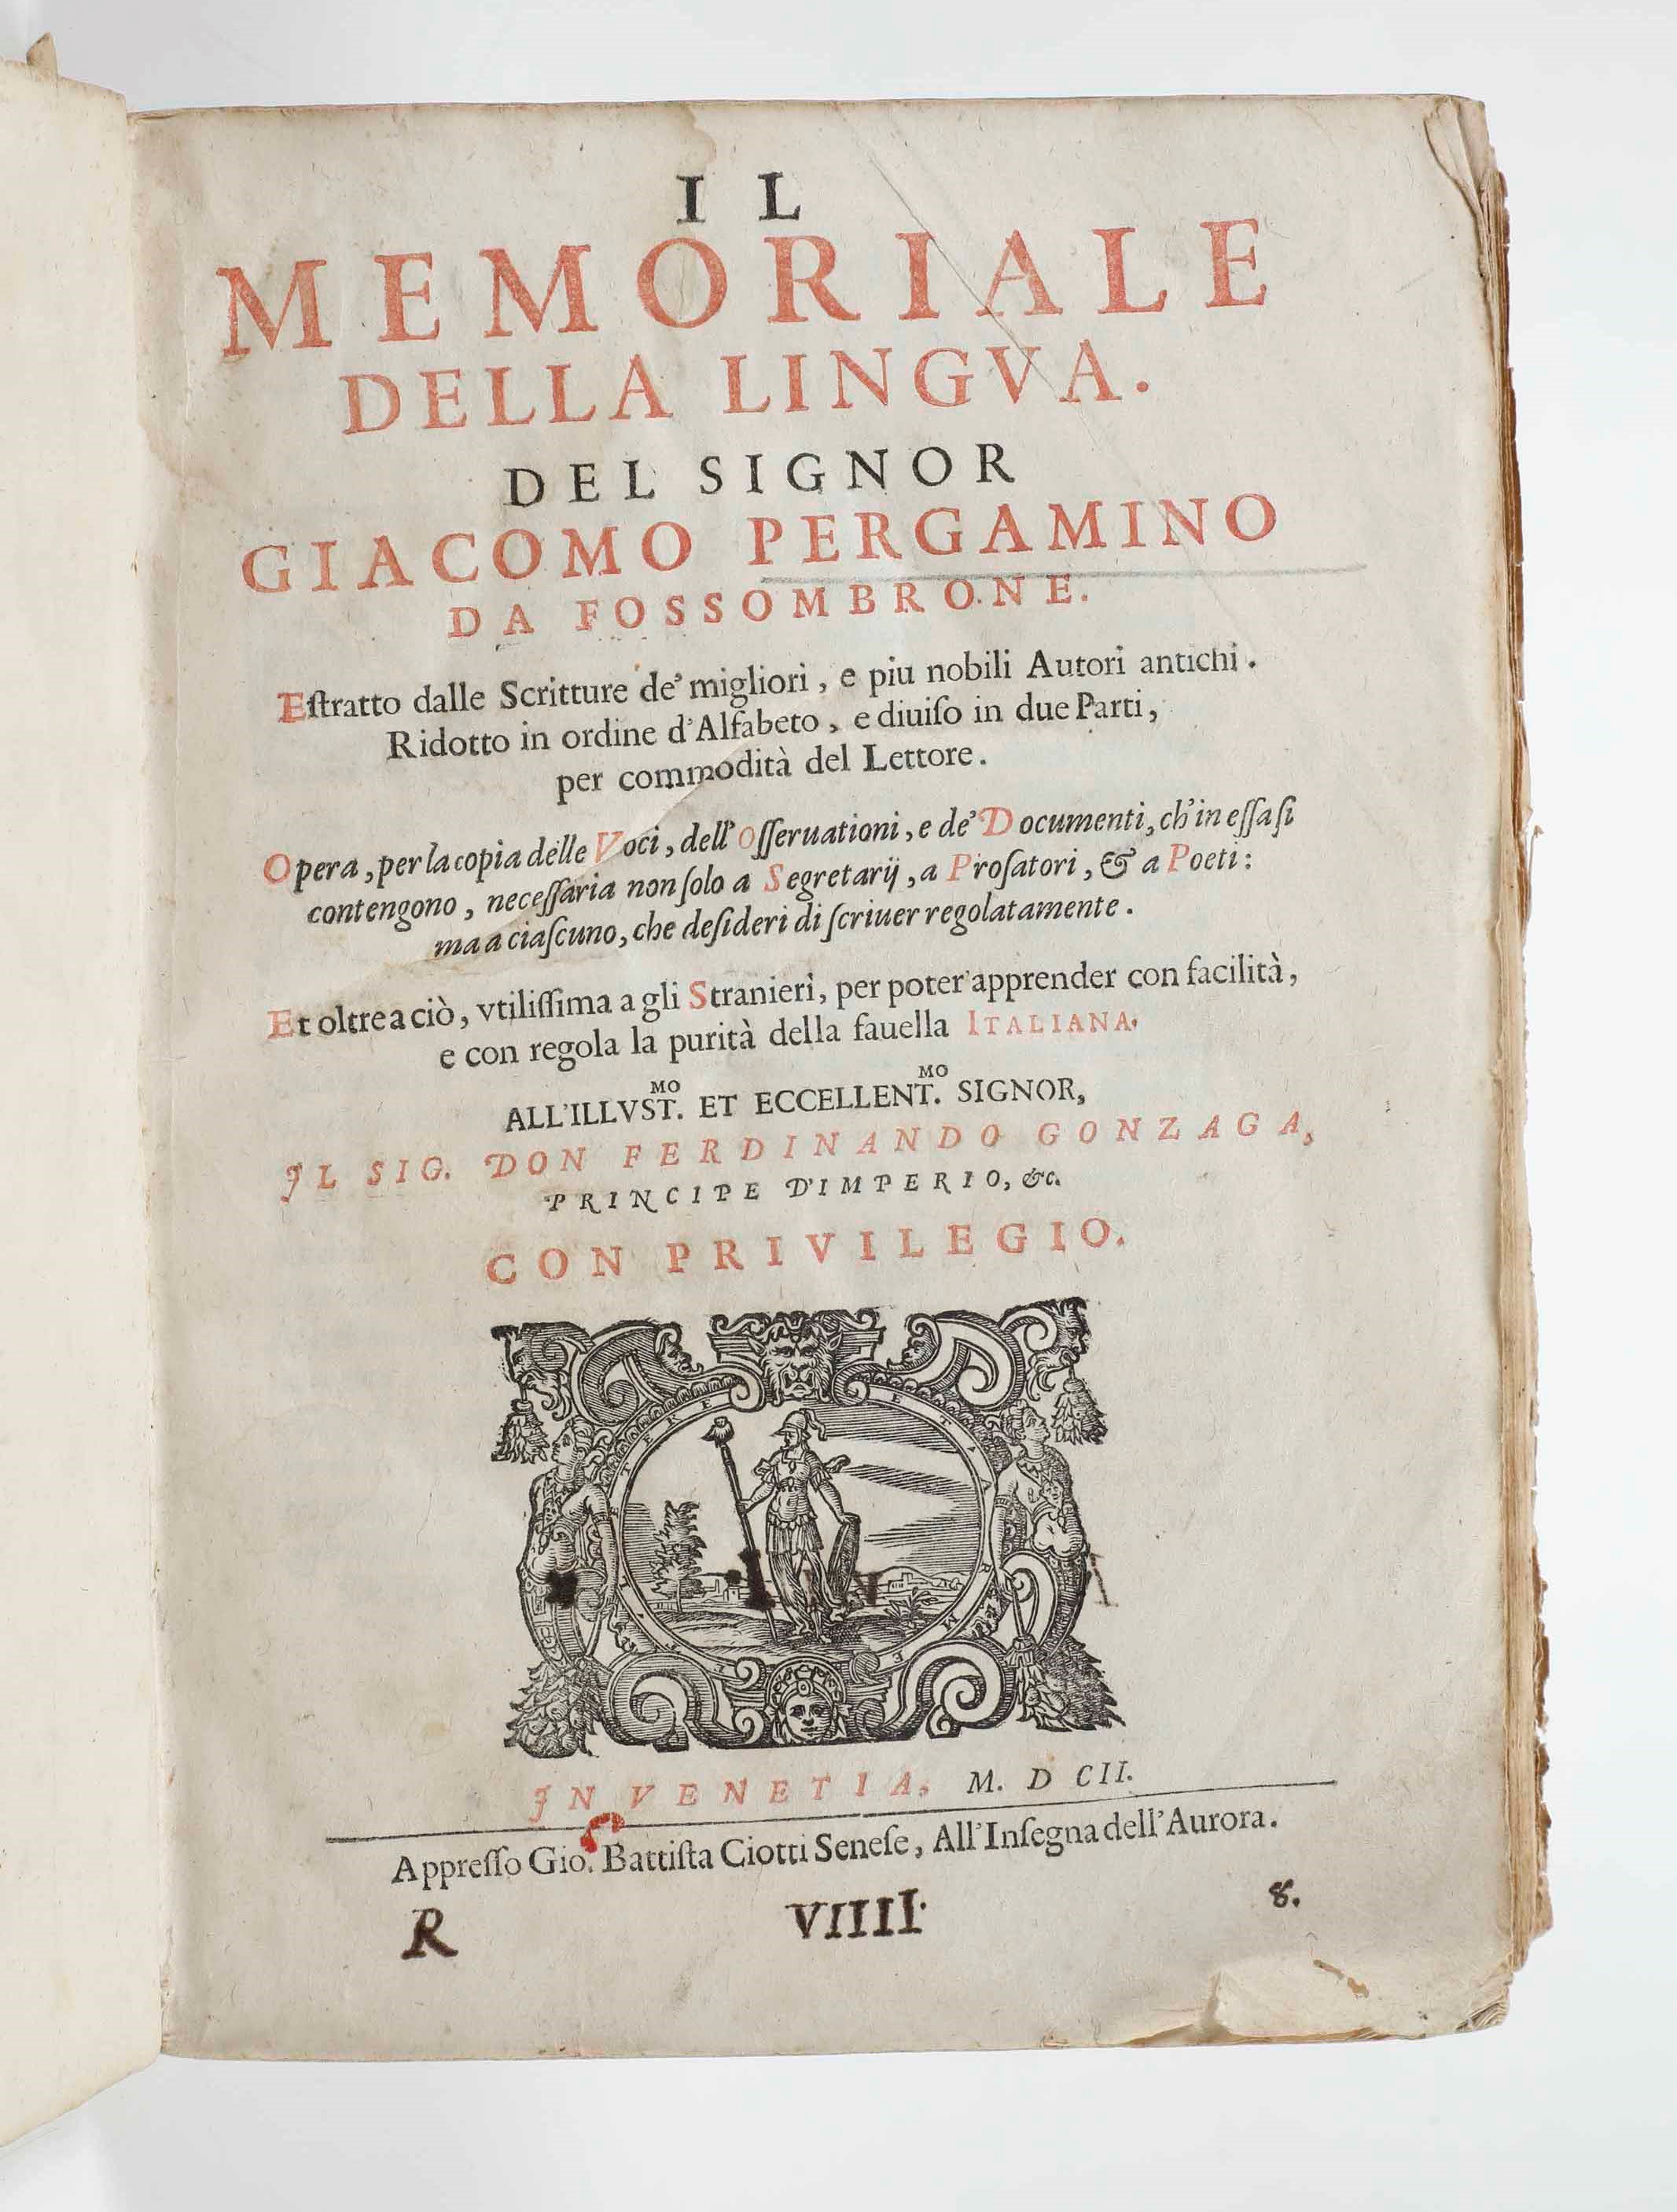 IL
MEMORIALE
DELLA LINGVA.
DEL SIGNOR
GIACOMO PERGAMINO
DA FOSSOMBRONE.
Eſtratto dalle Scritture de' migliori, e piu nobili Autori antichi.
Ridotto in ordine d'Alfabeto, e diuiſo in due Parti,
per commodità del Lettore.
Opera, per la copia delle Voci, dell' Oſſeruationi, e de' Documenti, ch' in eſſa ſi
contengono, neceſſaria non ſolo a Segretarij, a Proſatori, & a Poeti:
ma a ciaſcuno, che deſideri di ſcriuer regolatamente.
Et oltre a ciò, vtiliſſima a gli Stranieri, per poter apprender con facilità,
e con regola la purità della fauella ITALIANA.
ALL'ILLVST.MO ET ECCELLENT.MO SIGNOR,
IL SIG. DON FERDINANDO GONZAGA,
PRINCIPE D'IMPERIO, &c.
CON PRIVILEGIO.
IN VENETIA, M. D CII.
Appreſſo Gio. Battiſta Ciotti Seneſe, All'Inſegna dell'Aurora.
R VIIII. 8.